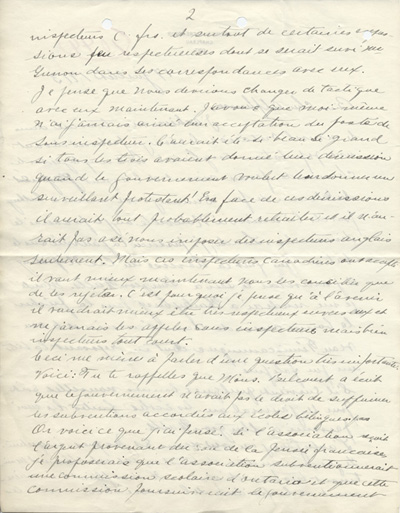 2
inspecteurs C. frs. et surtout de certaines expres
sions peu respectueuses dont se serait servi Jac
Genon dans ses correspondances avec eux.
Je pense que nous devrions changer de tactique
avec eux maintenant. J'avoue que moi-même
n'ai jamais aimé leur acceptation du poste de
sous inspecteur. C'aurait été si beau si grand
si tous les trois avaient donné leur démission
quand le gouvernement voulut leur donner un
surveillant protestant! En face de ces démissions
il aurait tout probablement retraité et il n'au-
rait pas osé nous imposer des inspecteurs anglais
seulement. Mais ces inspecteurs Canadiens ont accepté
il vaut mieux maintenant nous les concilier que
de les rejeter. C'est pourquoi je pense qu'à l'avenir
il vaudrait mieux être très respectueux envers eux et
ne jamais les appeler sous inspecteurs mais bien
inspecteurs tout court.
Ceci me mène à parler d'une question très importante.
Voici: Tu te rappelles que Mons. Belcourt a écrit
que le gouvernement n'avait pas le droit de supprimer
les subventions accordées aux écoles bilingues
Or voici ce que j'ai pensé. Si l'association reçoit
l'argent provenant du sou de la Pensée française
je proposerais que l'association subventionnerait
une commission scolaire d'Ontario et que cette
commission poursuivrait le gouvernement